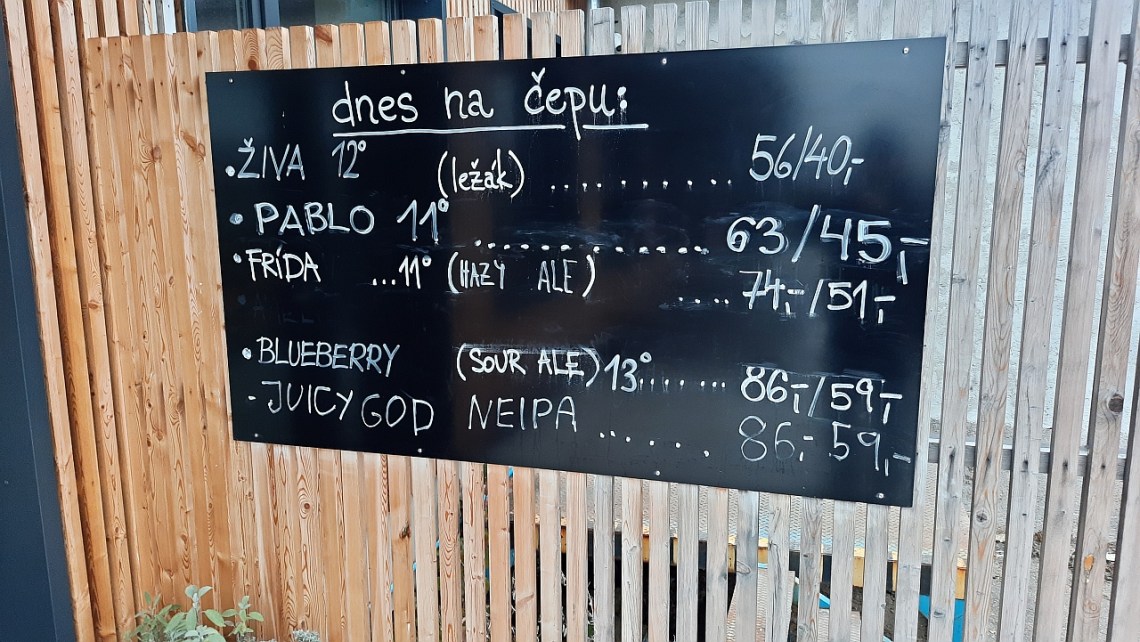 dnes na čepu:
• ŽIVA 12° (ležák) ......... 56/40,-
• PABLO 11° ............. 63/45,-
• FRÍDA ...11° (HAZY ALE) .... 74,-/51,-
• BLUEBERRY (SOUR ALE) 13°....... 86,-/59,-
- JUICY GOD NEIPA ...... 86,- 59,-